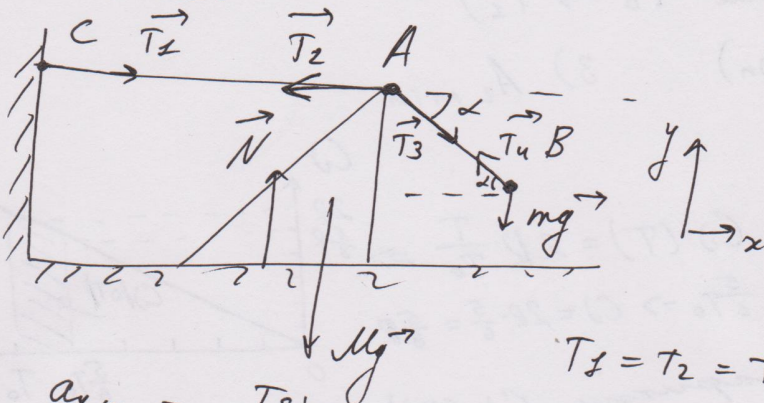 C T⃗1 T⃗2 A
N⃗ T⃗3 α T⃗4 B y
α mg⃗ x
Mg⃗
T1 = T2 =